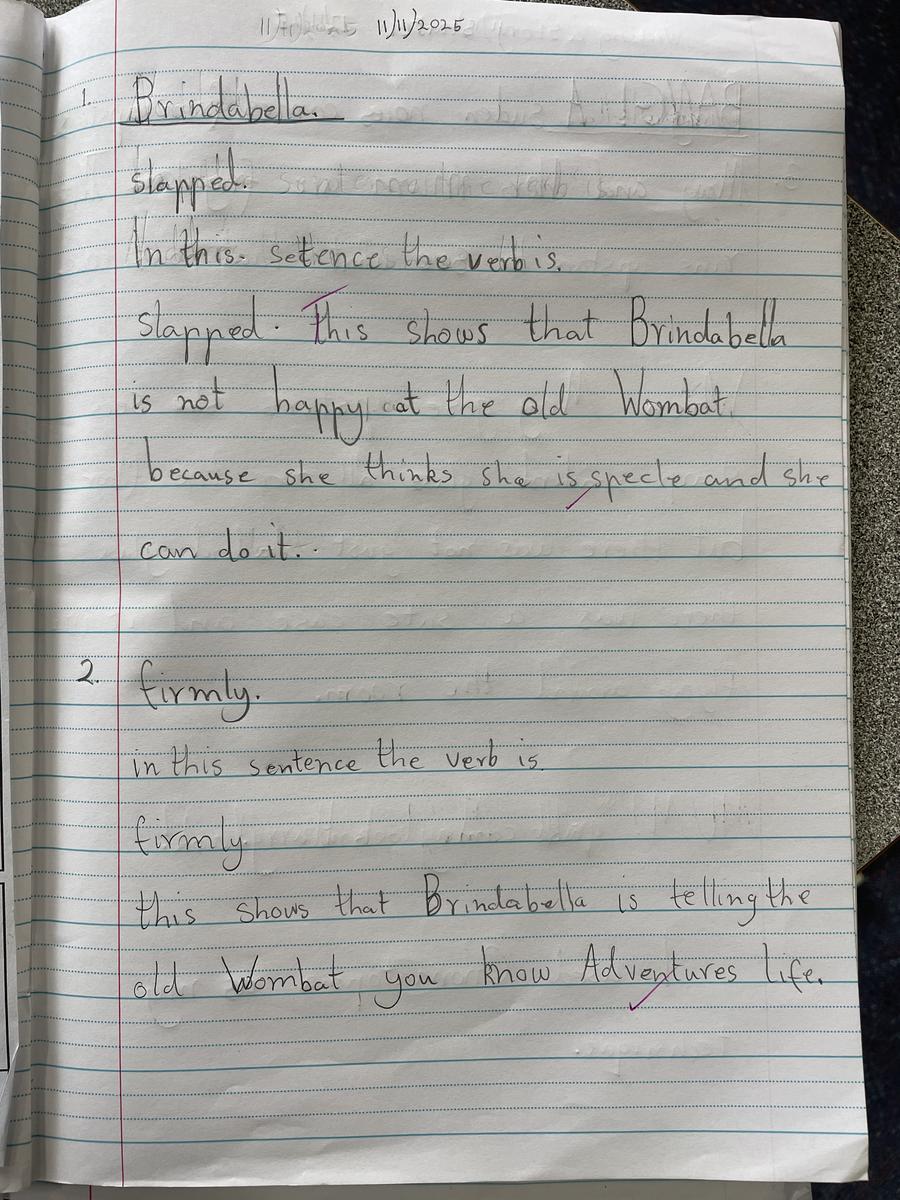 11/11/2025
1. Brindabella.
slapped.
In this. setence the verb is.
slapped. This shows that Brindabella
is not happy at the old Wombat
because she thinks she is specle and she
can do it..
2. firmly.
in this sentence the verb is.
firmly
this shows that Brindabella is telling the
old Wombat you know Adventures life.